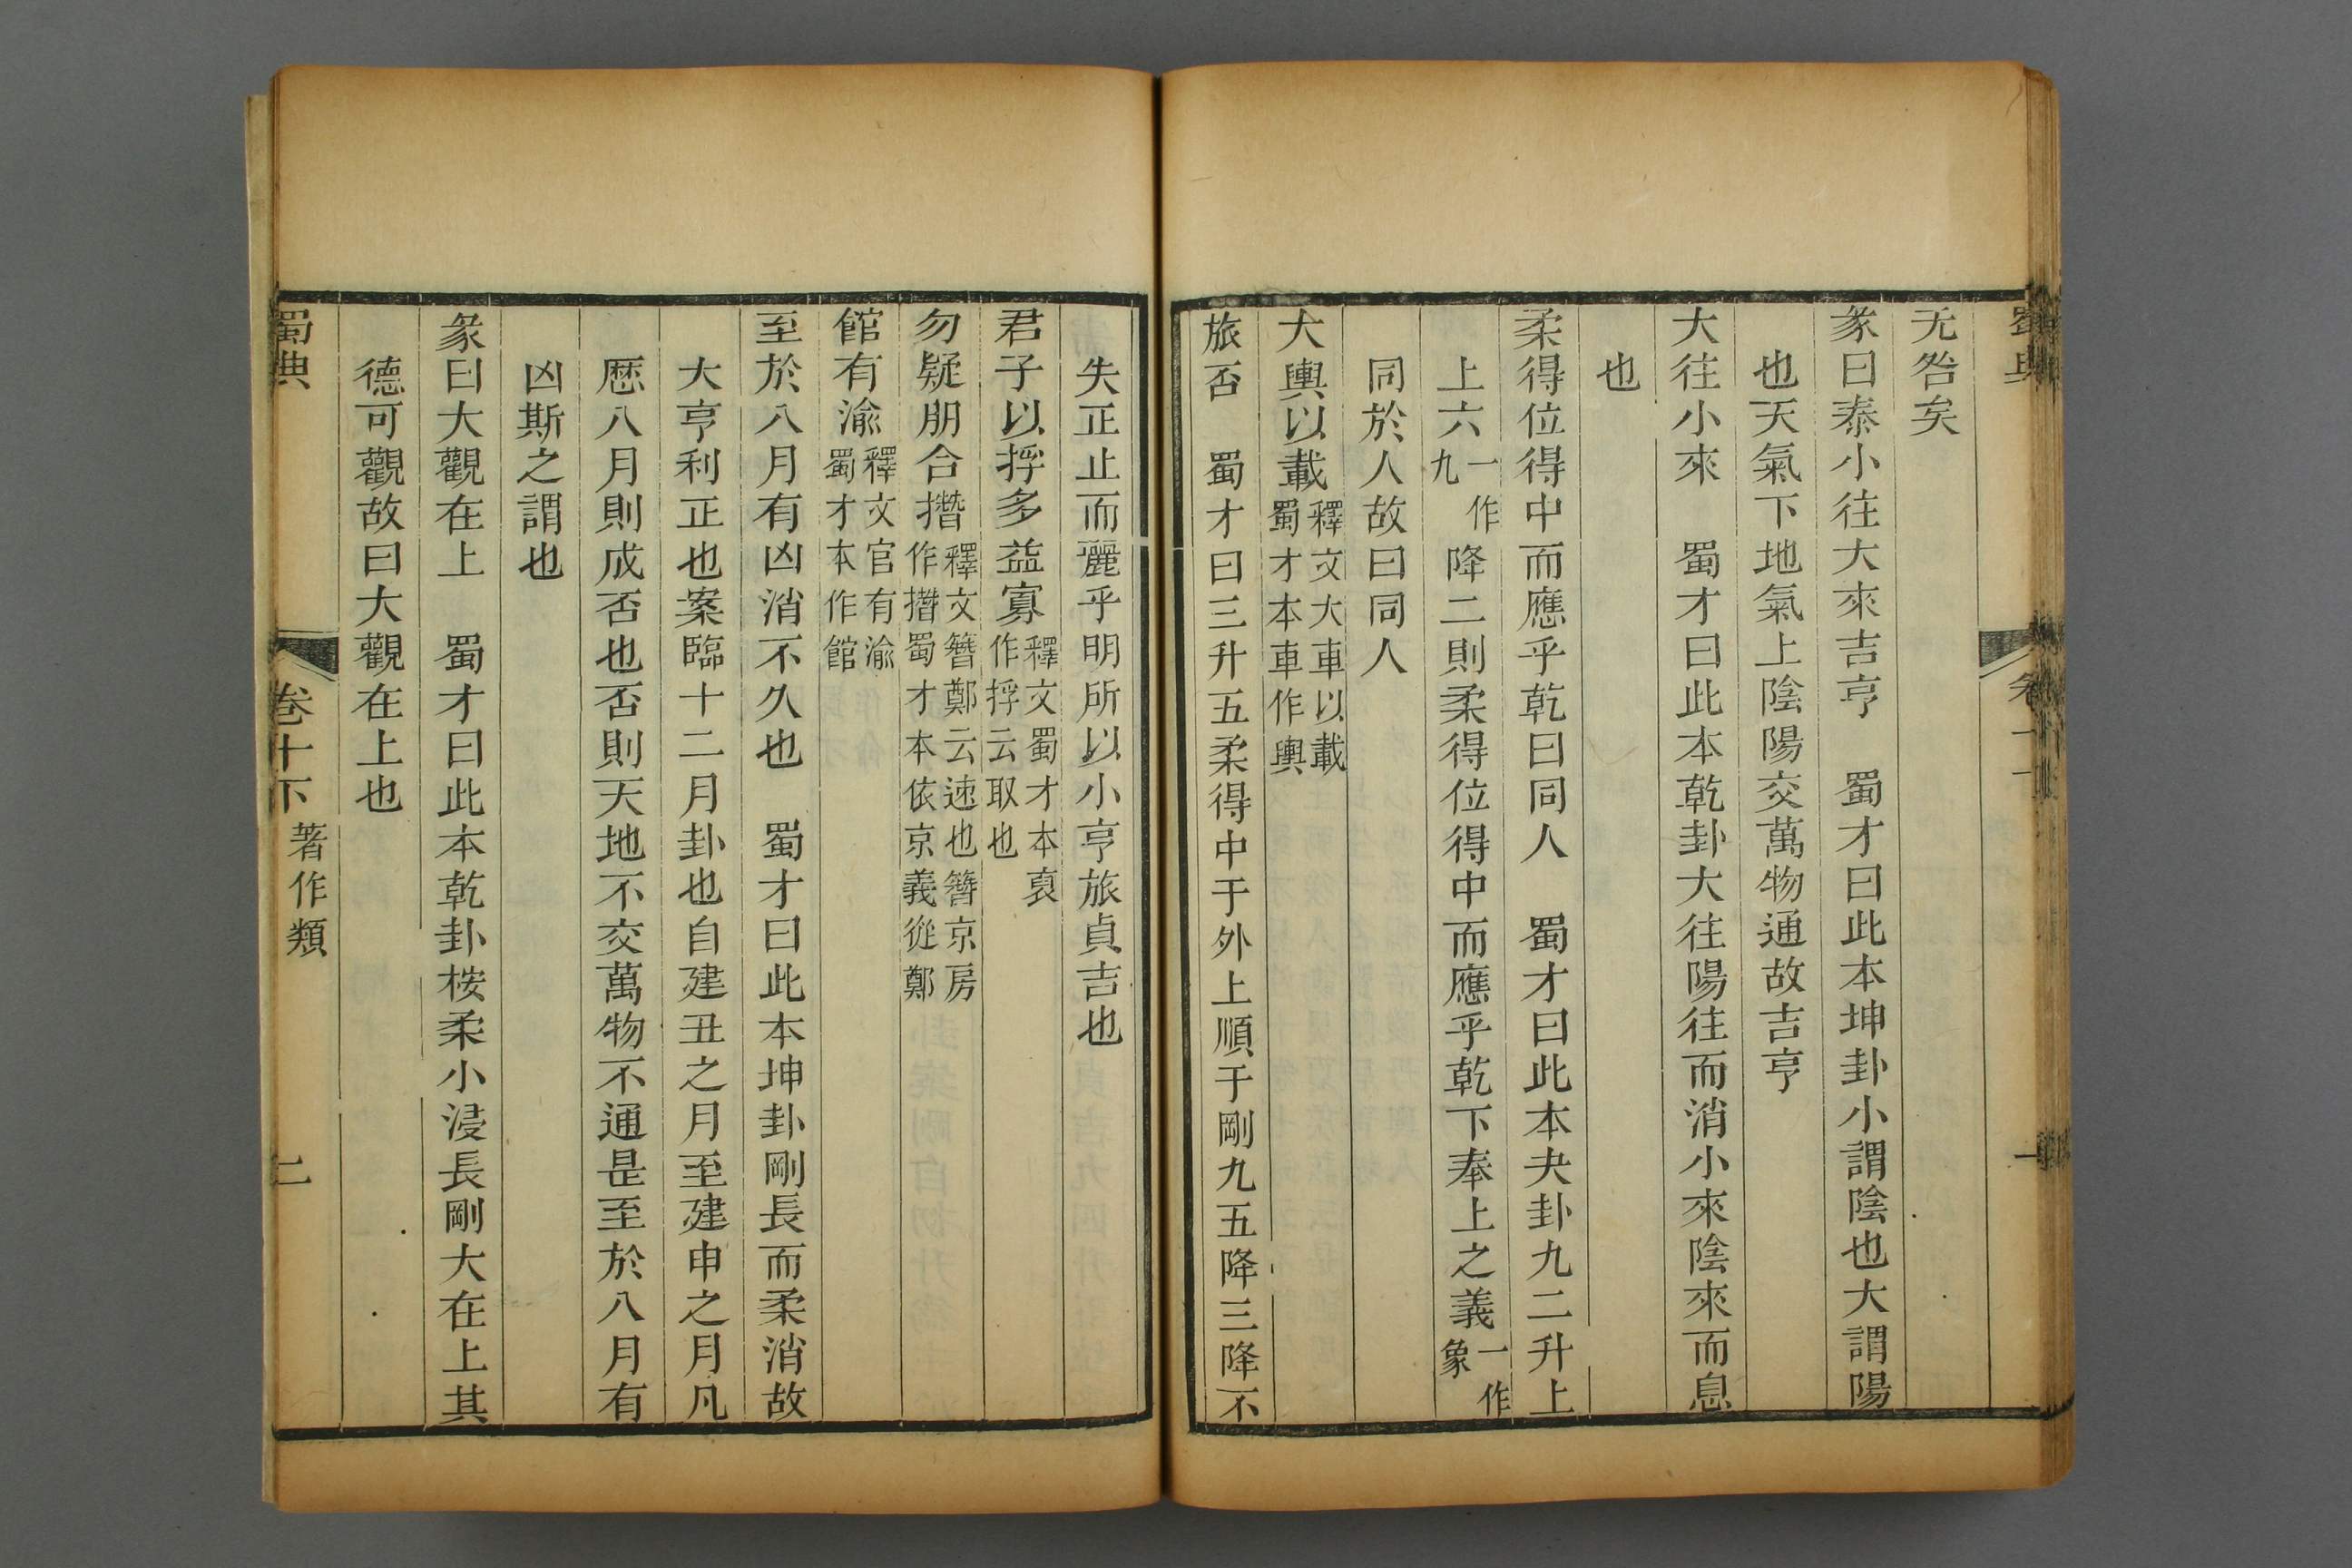 无咎矣
彖曰泰小往大來吉亨　蜀才曰此本坤卦小謂陰也大謂陽
也天氣下地氣上陰陽交萬物通故吉亨
大往小來　蜀才曰此本乾卦大往陽往而消小來陰來而息
也
柔得位得中而應乎乾曰同人　蜀才曰此本夬卦九二升上
上六一作九降二則柔得位得中而應乎乾下奉上之義一作象
同於人故曰同人
大輿以載釋文大車以載蜀才本車作輿
旅否　蜀才曰三升五柔得中于外上順于剛九五降三降不
失正止而麗乎明所以小亨旅貞吉也
君子以捊多益寡釋文蜀才本裒作捊云取也
勿疑朋合撍釋文簪鄭云速也簪京房作撍蜀才本依京義從鄭
館有渝釋文官有渝蜀才本作館
至於八月有凶消不久也　蜀才曰此本坤卦剛長而柔消故
大亨利正也案臨十二月卦也自建丑之月至建申之月凡
歷八月則成否也否則天地不交萬物不通是至於八月有
凶斯之謂也
彖曰大觀在上　蜀才曰此本乾卦桉柔小浸長剛大在上其
德可觀故曰大觀在上也
蜀典　卷十下　著作類　二